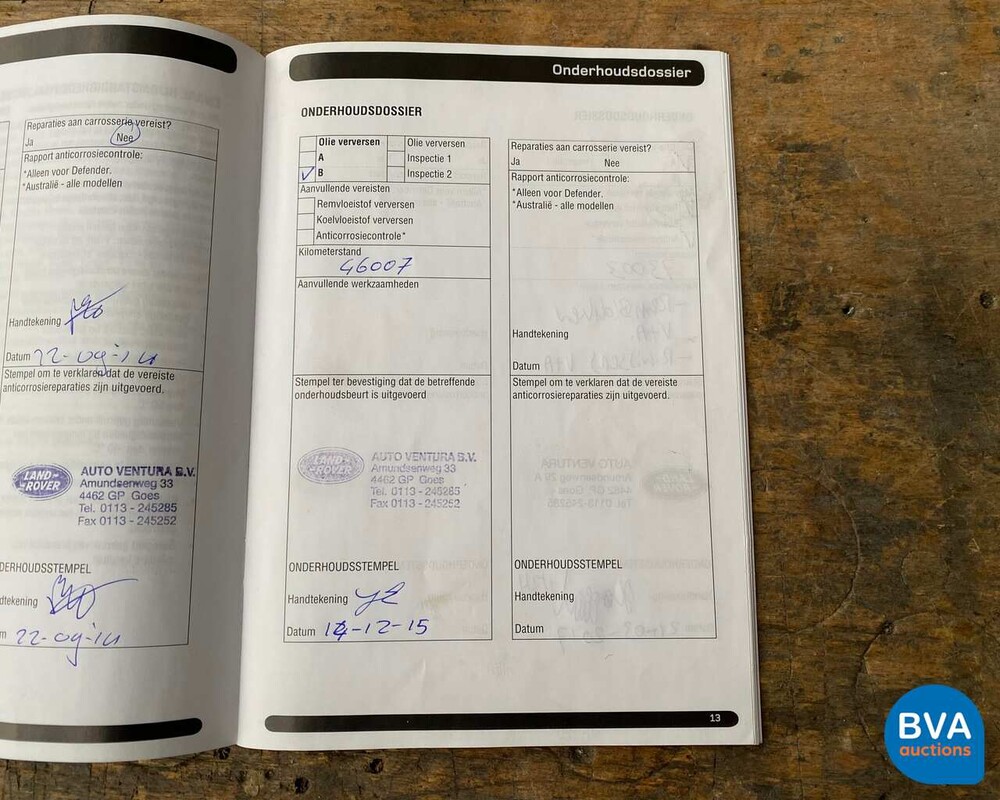 Reparaties aan carrosserie vereist?
Ja Nee
Rapport anticorrosiecontrole:
*Alleen voor Defender.
*Australië - alle modellen
Handtekening
Datum 22-09-14
Stempel om te verklaren dat de vereiste
anticorrosiereparaties zijn uitgevoerd.
LAND-ROVER
AUTO VENTURA B.V.
Amundsenweg 33
4462 GP Goes
Tel. 0113 - 245285
Fax 0113 - 245252
ONDERHOUDSSTEMPEL
22-09-14
Onderhoudsdossier
ONDERHOUDSDOSSIER
Olie verversen Olie verversen
A Inspectie 1
B Inspectie 2
Aanvullende vereisten
Remvloeistof verversen
Koelvloeistof verversen
Anticorrosiecontrole*
Kilometerstand
46007
Aanvullende werkzaamheden
Stempel ter bevestiging dat de betreffende
onderhoudsbeurt is uitgevoerd
LAND-ROVER
AUTO VENTURA B.V.
Amundsenweg 33
4462 GP Goes
Tel. 0113 - 245285
Fax 0113 - 245252
ONDERHOUDSSTEMPEL
Handtekening
Datum 14-12-15
Reparaties aan carrosserie vereist?
Ja Nee
Rapport anticorrosiecontrole:
*Alleen voor Defender.
*Australië - alle modellen
Handtekening
Datum
Stempel om te verklaren dat de vereiste
anticorrosiereparaties zijn uitgevoerd.
ONDERHOUDSSTEMPEL
Handtekening
Datum
13
BVA
auctions